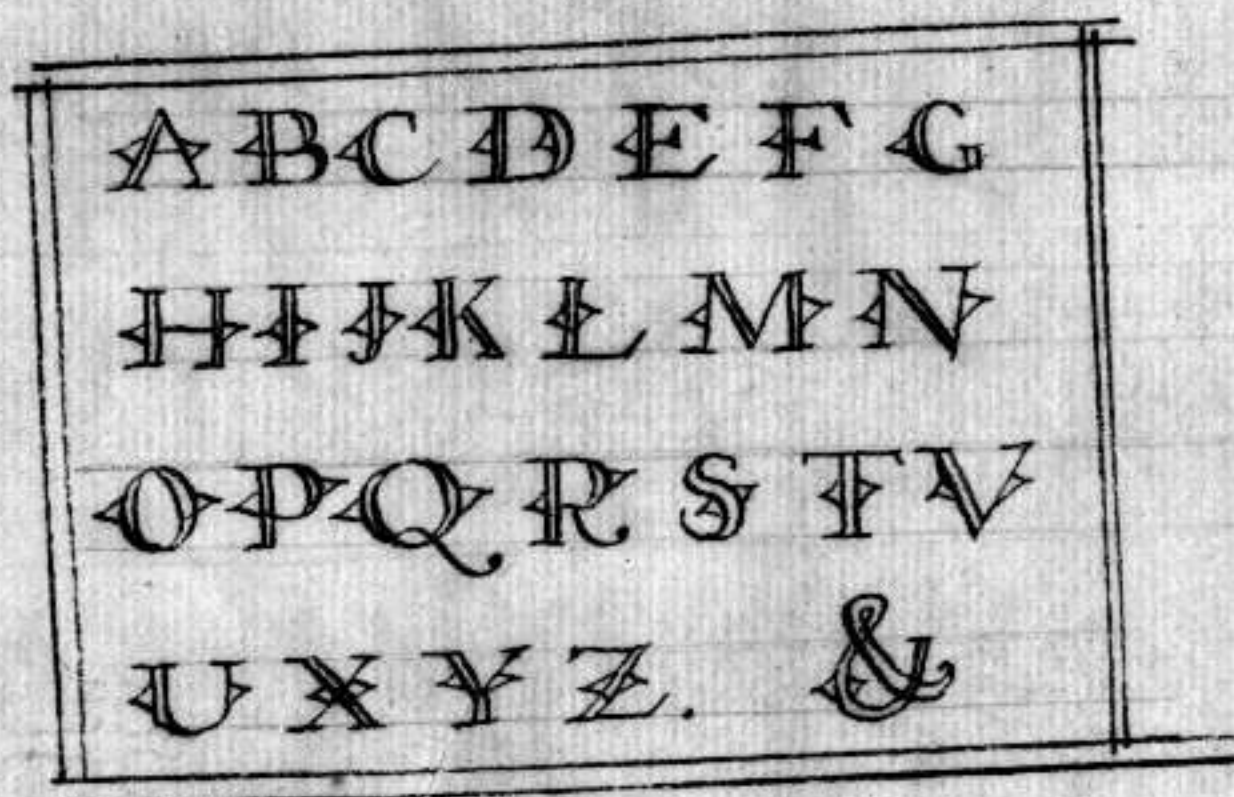 A B C D E F G
H I J K L M N
O P Q R S T V
U X Y Z. &